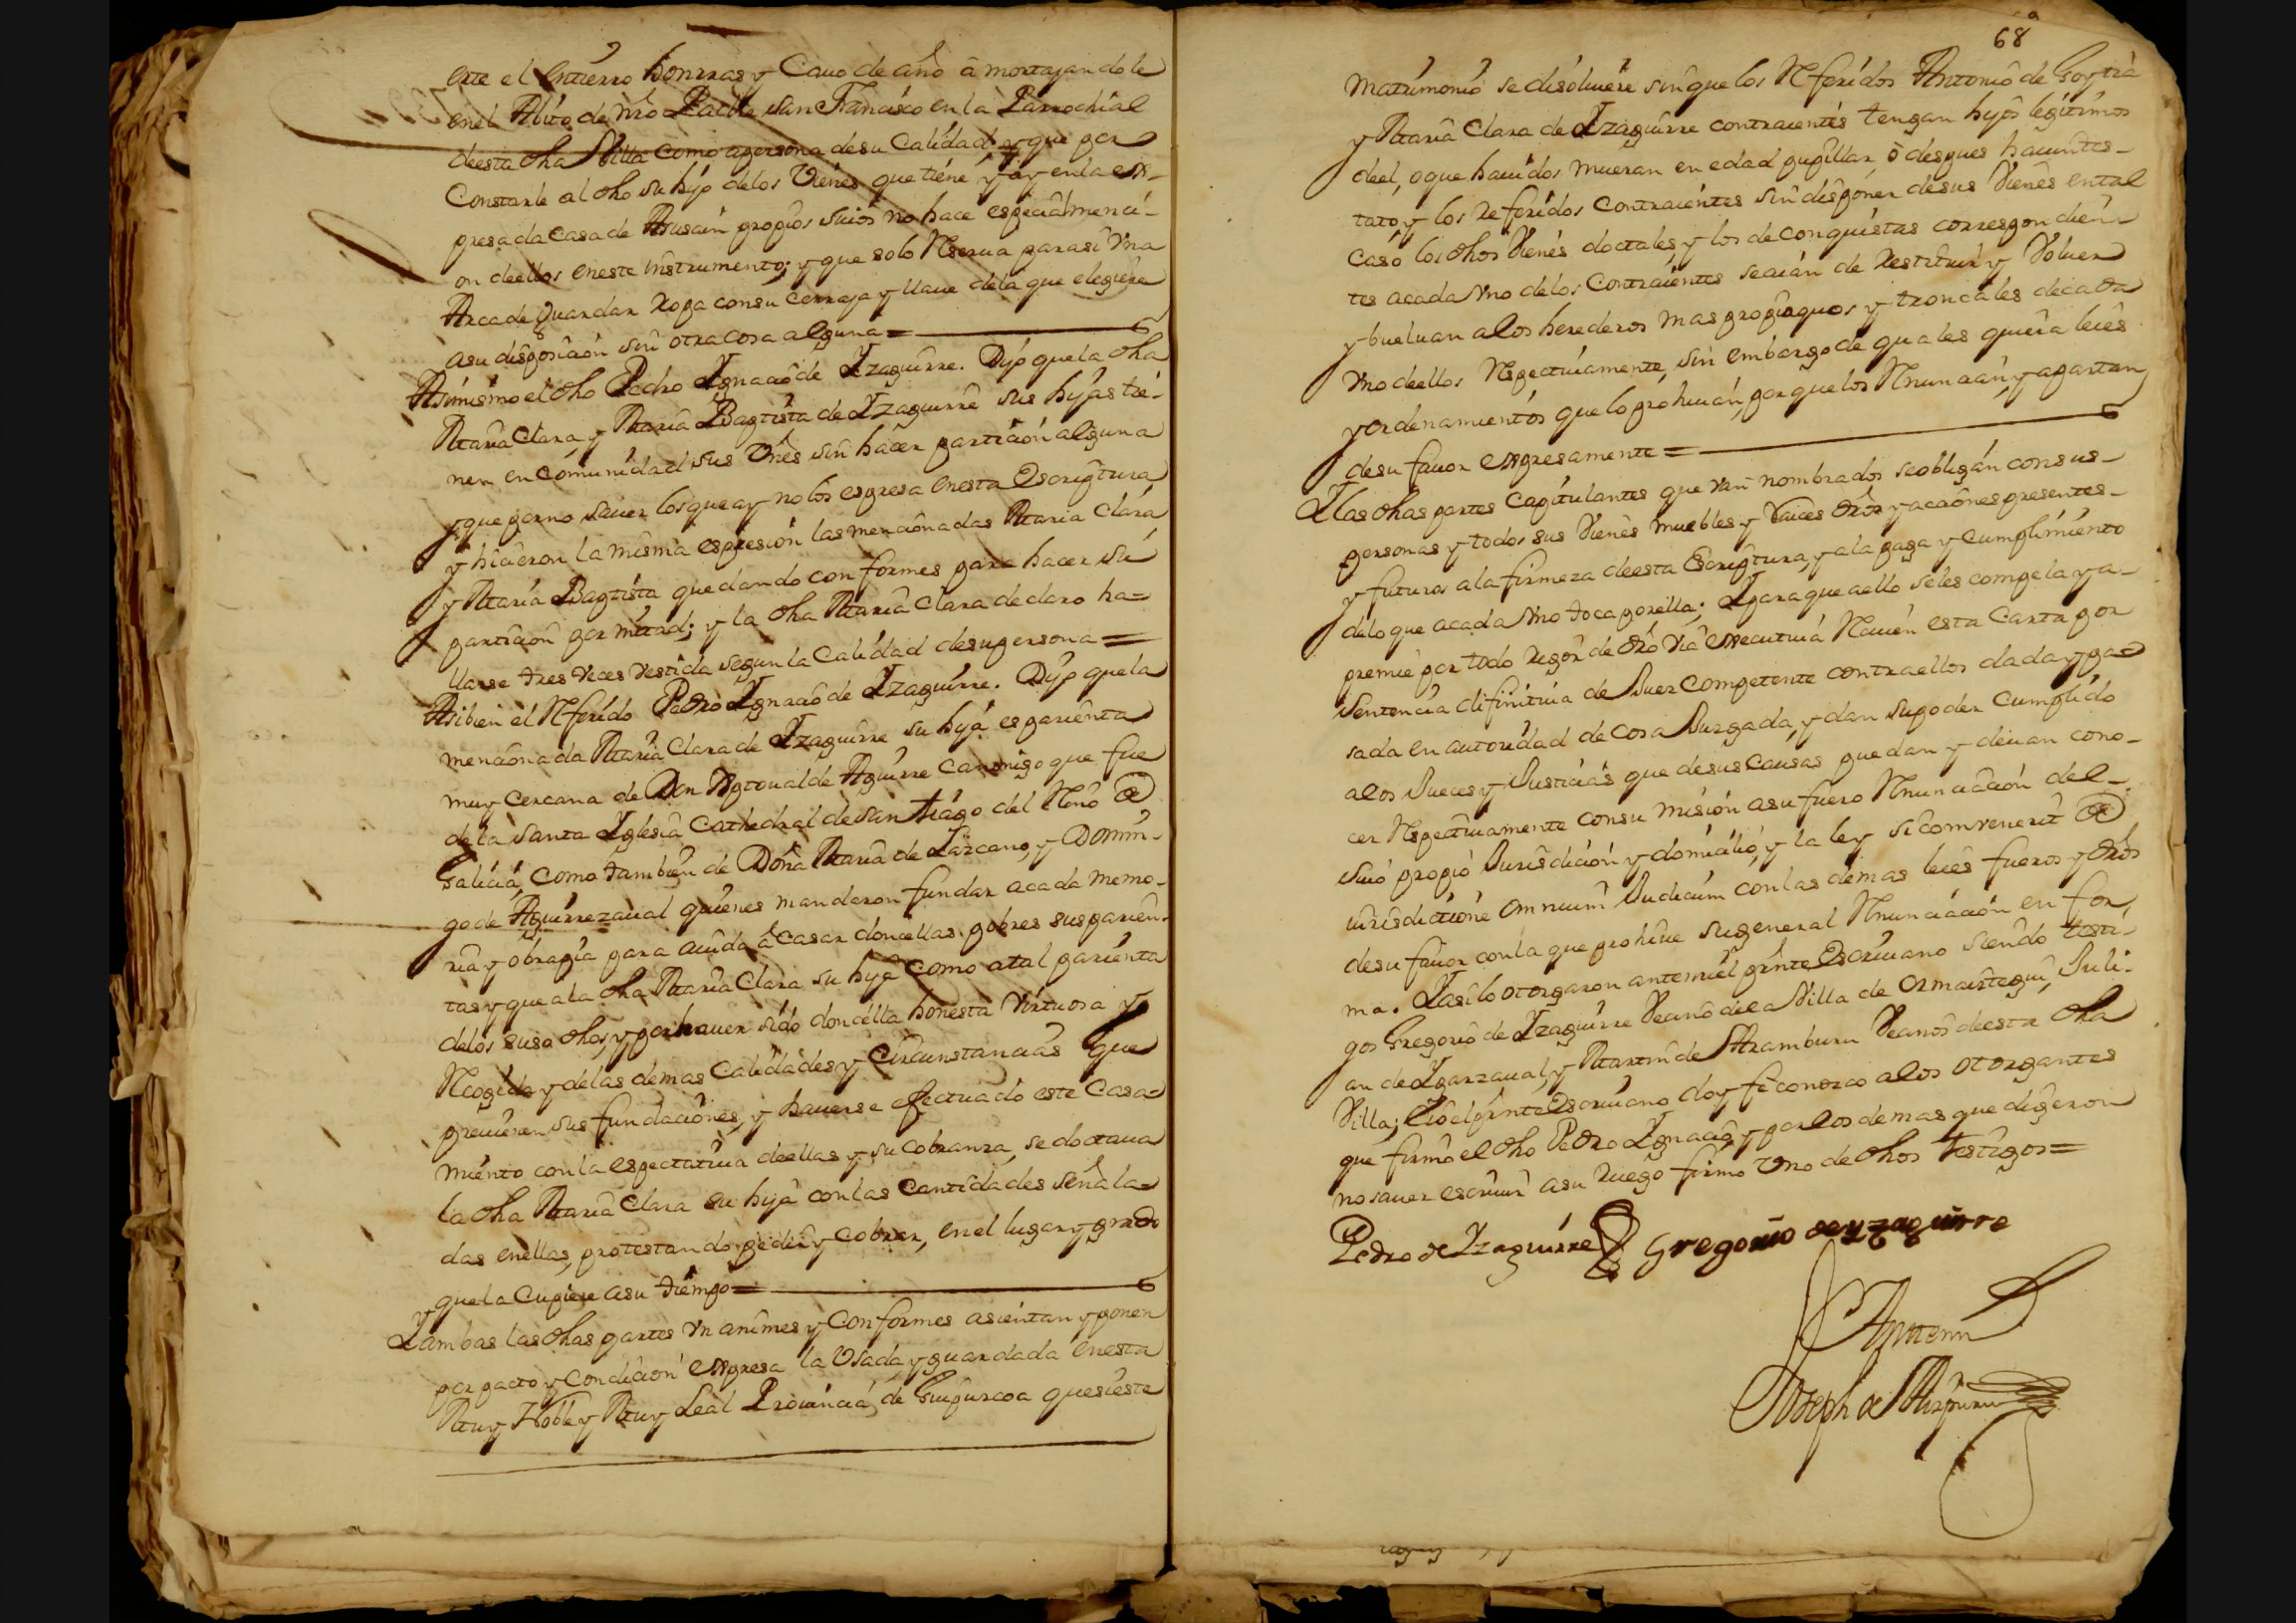 este el entierro honrras y Cauo de año â mortajandole
en el Abito de nro Padre San Francisco en la Parrochial
de esta dha Villa como apersona de su Calidad y que por
Constarle al dho su hijo delos Vienes que tiene y ay en la ex-
presada Casa de Ausain propios suios no hace especial menci-
on de ellos en este instrumento; y que solo Reserua para si Vna
Arca de guardar Ropa con su Cerraja y llaue dela que elegiere
a su disposicion sin otra cosa alguna=
Asimismo el dho Pedro Ygnacio de Yzaguirre. Dijo que la dha
Maria Clara, y Maria Baptista de Yzaguirre sus hijas tie-
nen en Comunidad sus Vnes sin hacer particion alguna
y que por no sauer los que ay no los espresa en esta Escriptura
y hicieron la misma espresion las mencionadas Maria Clara
y Maria Baptista quedando conformes para hacer su
particion por mitad; y la dha Maria Clara declaro ha-
llarse tres veces vestida segun la Calidad de su persona=
Asibien el Referido Pedro Ygnacio de Yzaguirre. Dijo que la
mencionada Maria Clara de Yzaguirre su hija es parienta
muy cercana de Don Xptoual de Aguirre Canonigo que fue
de la Santa Yglesia Cathedral de Santiago del Reino de
Galicia, como tambien de Doña Maria de Lazcano, y Domin-
go de Aguirrezaual quienes mandaron fundar acada memo-
ria y obrapia para aiuda â casar doncellas pobres sus parien-
tas y que ala dha Maria Clara su hija como atal parienta
delos suso dhos, y por hauer sido doncella honesta Virtuosa y
Recogida y delas demas Calidades y Circunstancias que
preuienen sus fundaciones, y hauerse efectuado este Casa-
miento con la espectatiua de ellas y su Cobranza, se doctaua
la dha Maria Clara su hija con las Cantidades señala-
das en ellas, protestando pedir y cobrar, en el lugar y grado
que la Cupiere a su tiempo=
Y ambas las dhas partes Vnanimes y Conformes asientan y ponen
por pacto y Condicion expresa la Vsada y guardada en esta
Muy Noble y Muy Leal Prouincia, de Guipuzcoa que si este
68
Matrimonio se disoluiere sin que los Referidos Antonio de Goytia
y Maria Clara de Yzaguirre contraientes tengan hijos legitimos
de el, o que hauidos mueran en edad pupillar, ô despues hauintes-
tato, y los Referidos Contraientes sin disponer de sus Vienes en tal
Caso los dhos Vienes doctales, y los de conquistas correspondien-
tes acada Vno delos Contraientes se aian de Restituir y Voluer
y bueluan alos herederos mas propinquos y troncales de cada
Vno de ellos Respectiuamente, sin embargo de quales quiera leies
y ordenamientos que lo prohiuan, por que los Renuncian, y apartan
de su fauor expresamente=
Y las dhas partes Capitulantes que van nombrados se obligan con sus-
personas y todos sus Vienes muebles y Raices dros y acciones presentes-
y futuros ala firmeza de esta Escriptura, y ala paga y Cumplimiento
delo que acada Vno toca por ella; Y para que aello se les compela y a-
premie por todo Rigor de dro Via executiua Reciuen esta Carta por
Sentencia difinitiua de Juez Competente contra ellos dada y pa-
sada en autoridad de Cosa Juzgada, y dan su poder Cumplido
alos Jueces y Justicias que de sus Causas puedan y deuan cono-
cer Respectiuamente con su misión a su fuero Renunciacion del-
Suio propio Jurisdicion y domicilio, y la ley si comvenerit de
iurisdictione omnium Judicum con las demas leies fueros y dros
de su fauor con la que prohiue su general Renunciacion en for-
ma. Y asi lo otorgaron ante mi el prnte Escriuano siendo testi-
gos Gregorio de Yzaguirre Vecino de la Villa de Ormaiztegui, Juli-
an de Ygarzaual, y Martin de Aramburu Vecinos de esta dha
Villa; Y io el prnte Escriuano doy fe conozco alos otorgantes
que firmo el dho Pedro Ygnacio, y por los demas que dijeron
no sauer escriuir a su Ruego firmo Vno de dhos testigos=
Pedro de Yzaguirre Gregorio de yzaguirre
Ante mi
Joseph de Aizpuru